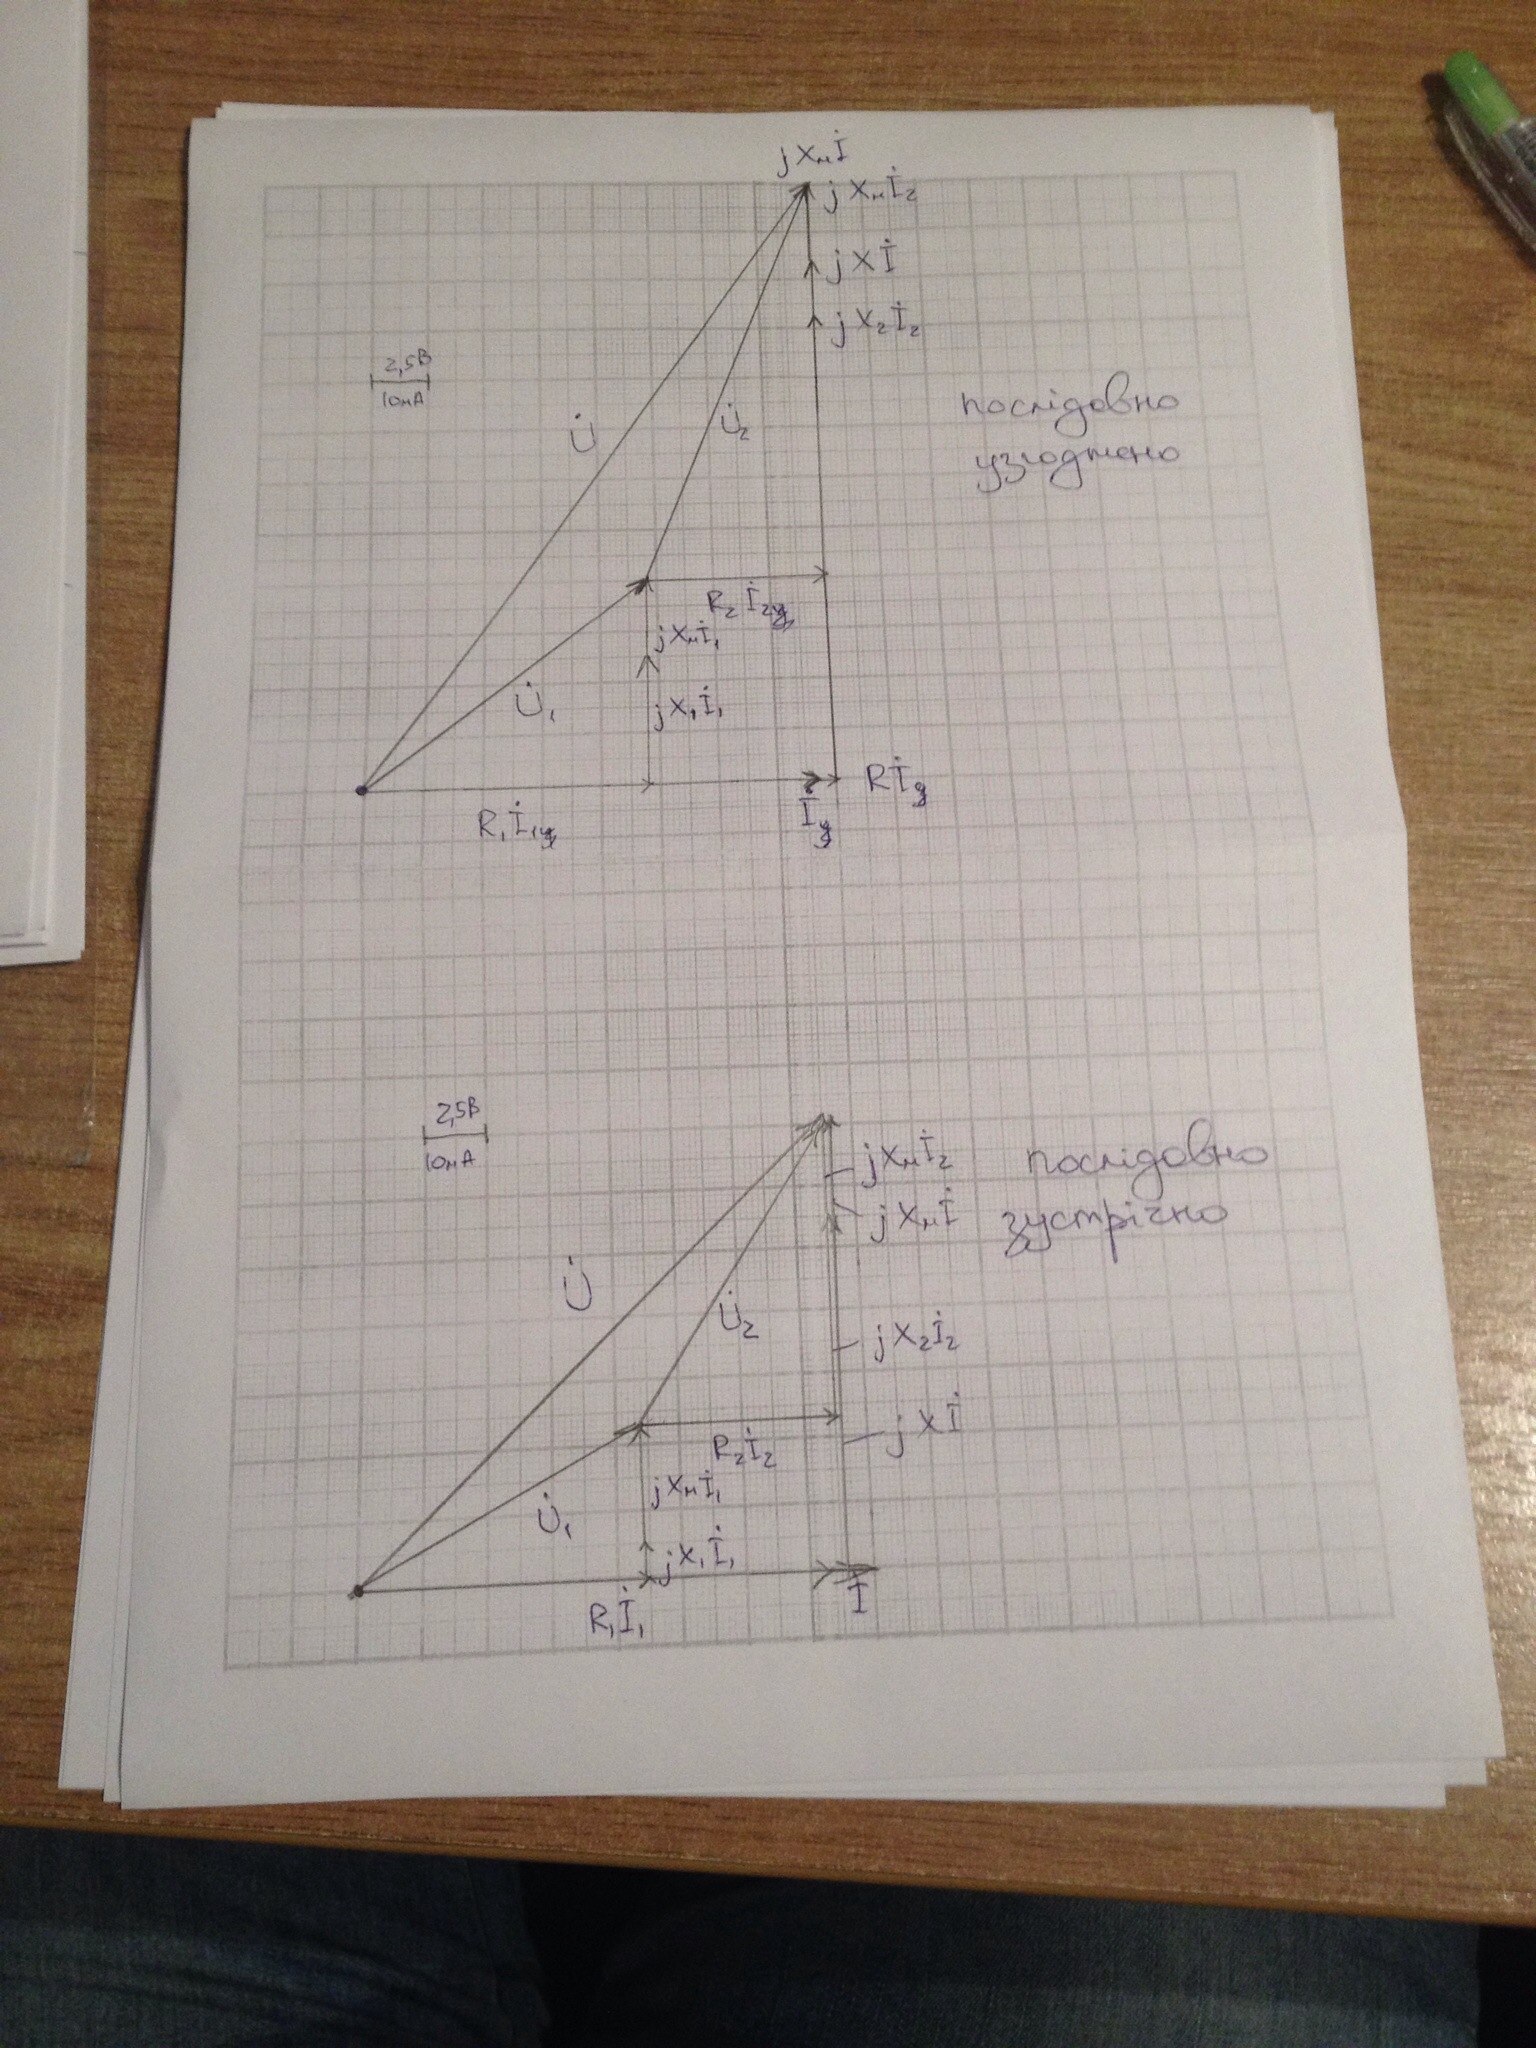 jXмİ
jXмİ₂
jXİ
jX₂İ₂
2,5В
10мА
U̇
U̇₂
послідовно
узгоджено
R₂İ₂у
jXмİ₁
U̇₁
jX₁İ₁
Rİу
R₁İ₁у
İу
2,5В
10мА
jXмİ₂
послідовно
jXмİ
зустрічно
U̇
U̇₂
jX₂İ₂
jXİ
R₂İ₂
jXмİ₁
U̇₁
jX₁İ₁
R₁İ₁
İ